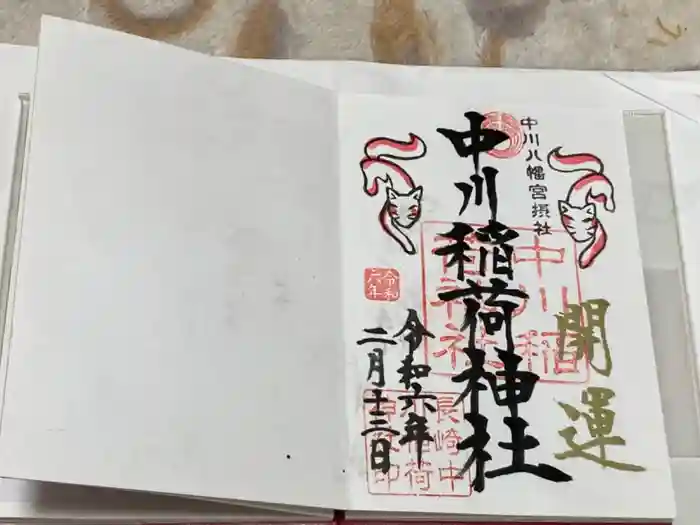 開運
中川八幡宮摂社
中川稲荷神社
中川稲
荷神社
令和
六年
令和六年
二月十三日
長崎中
川稲荷
神社印